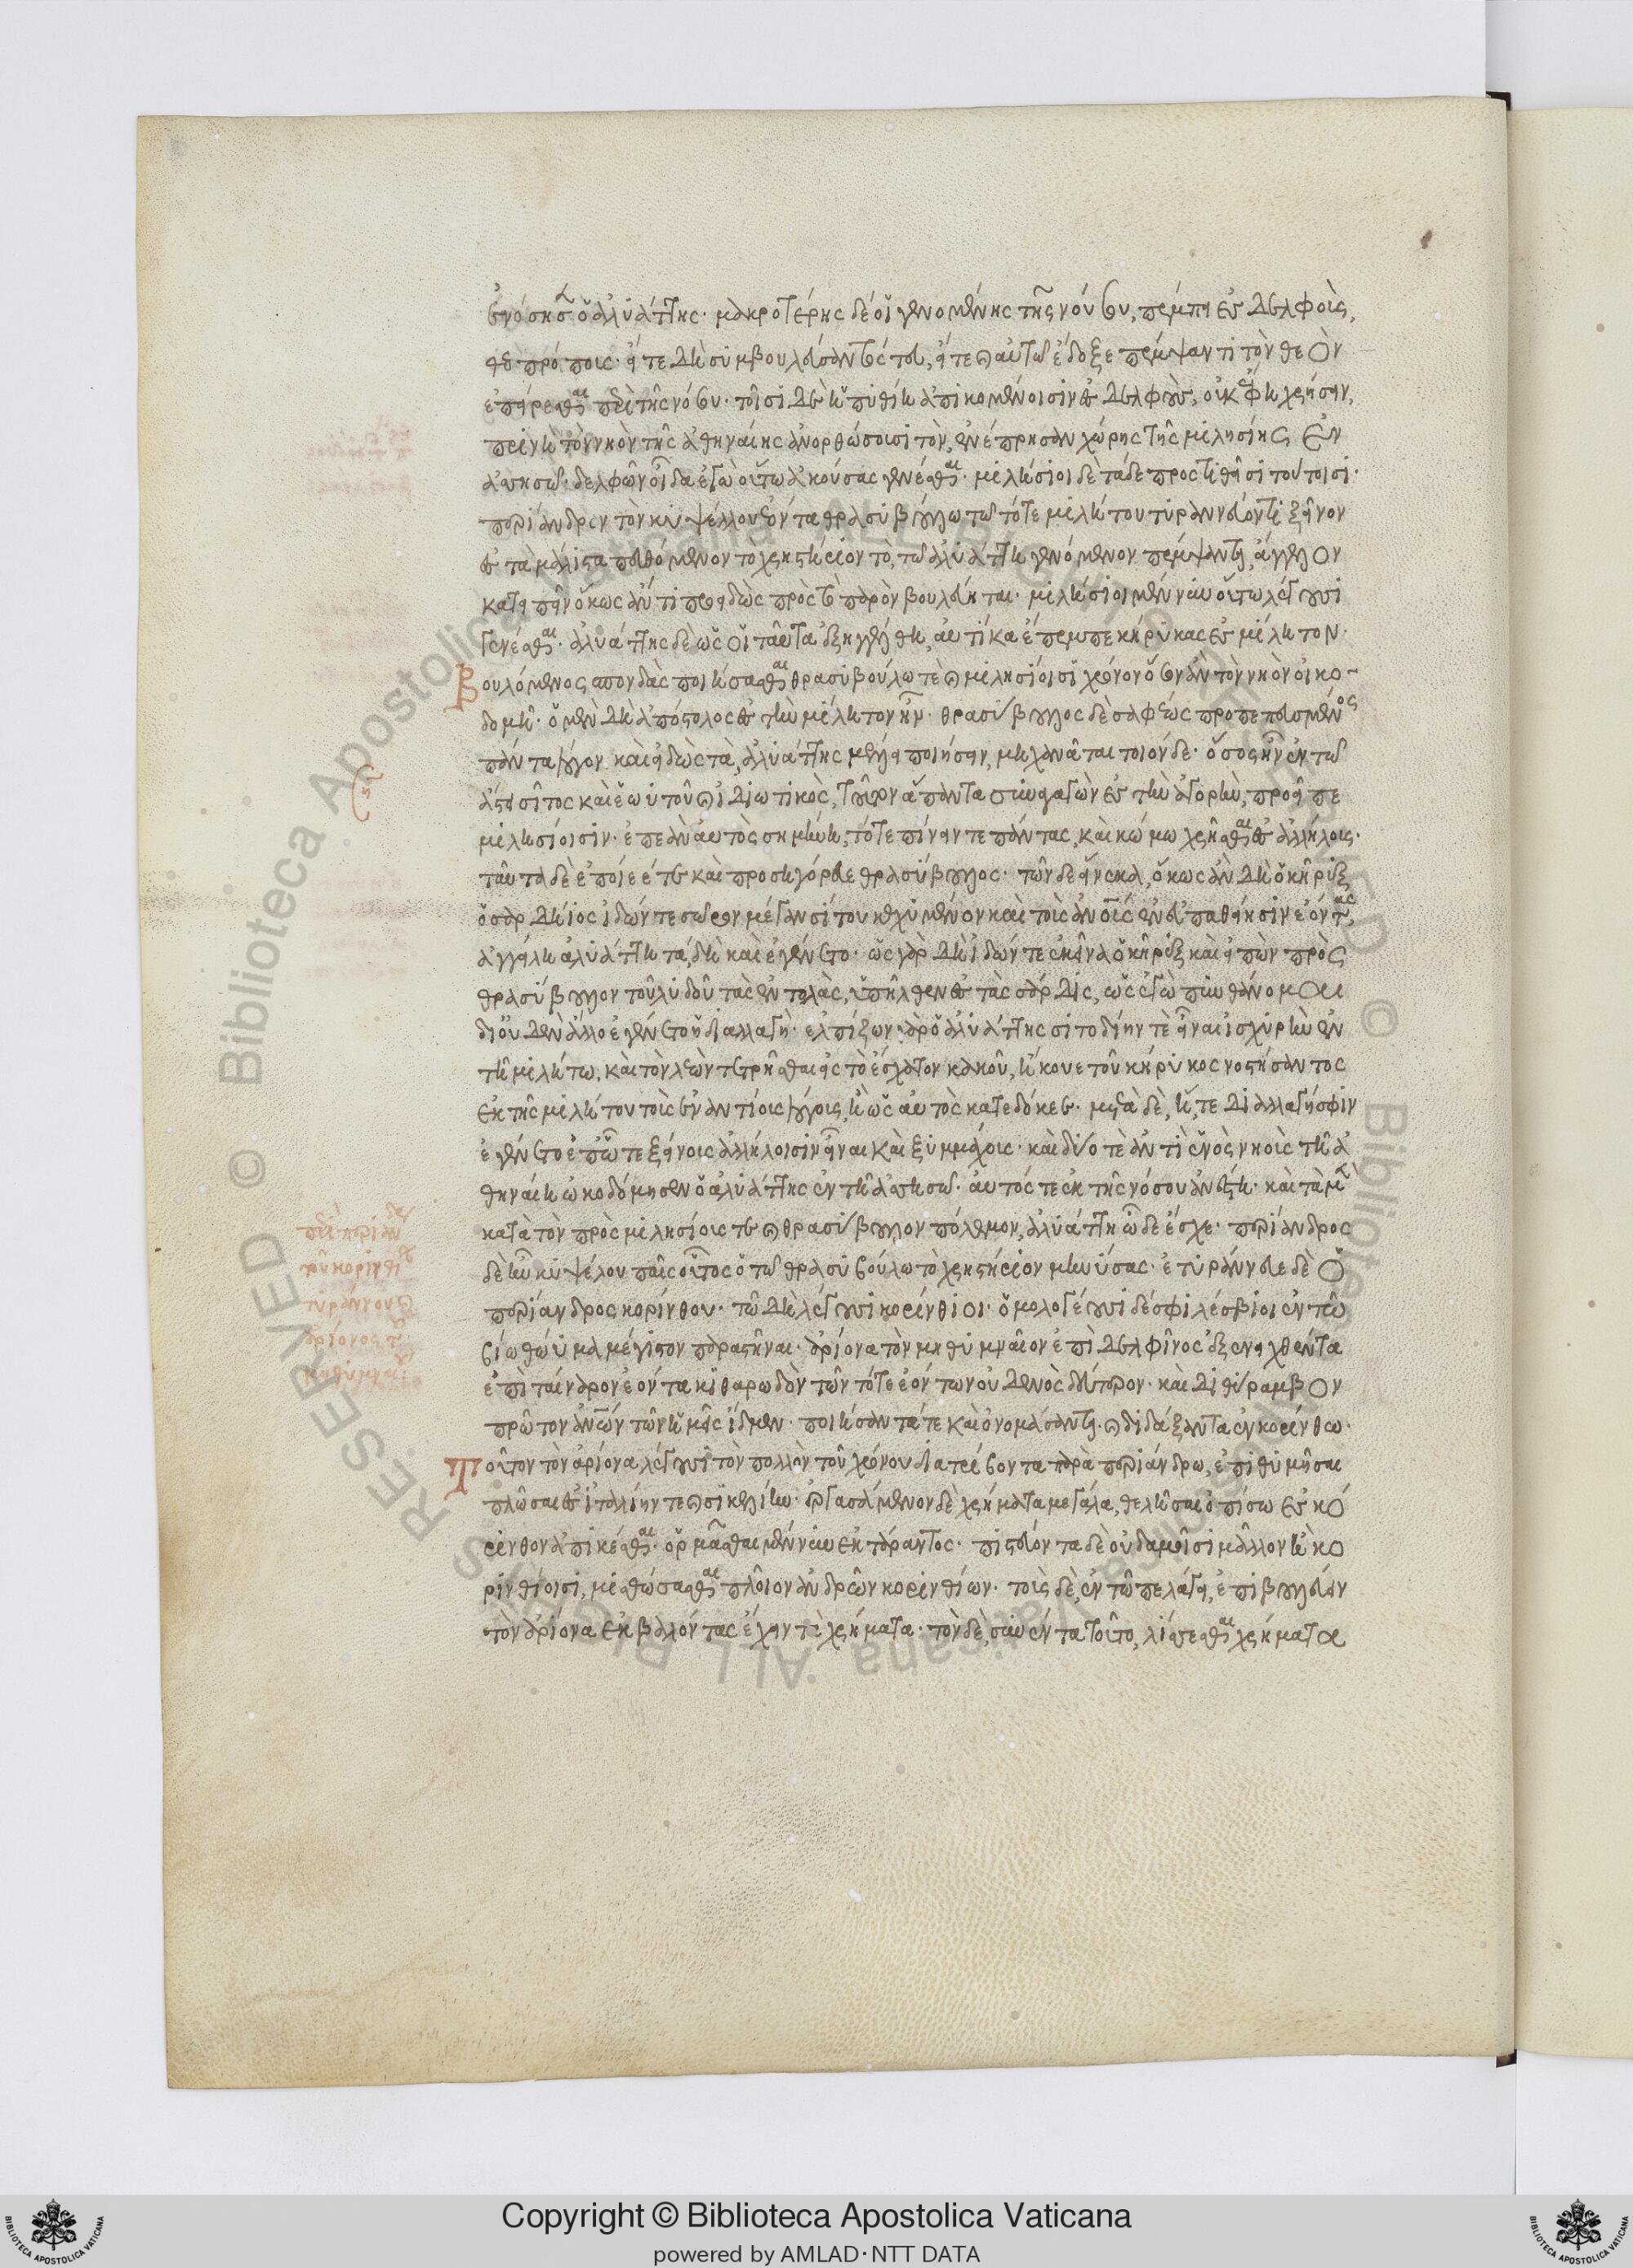 ἐνόσησε ὁ ἀλυάττης· μακροτέρης δέ οἱ γενομένης τῆς νούσου, πέμπει ἐς δελφοὺς,
θεοπρόπους· εἴτε δὴ συμβουλεύσαντός τευ, εἴτε καὶ αὐτῶ ἔδοξε πέμψαντι τὸν θεὸν
ἐπείρεσθαι περὶ τῆς νόσου· τοῖσι δὲ ἡ πυθίη ἀπικομένοισιν ἐς δελφοὺς, οὐκ ἔφη χρήσειν,
πρὶν ἢ τὸν νηὸν τῆς ἀθηναίης ἀνορθώσουσι τὸν, ἐνέπρησαν χώρης τῆς μιλησίης ἐν
ἀσησῶ· δελφῶν οἶδα ἐγὼ οὕτω ἀκούσας γενέσθαι· μιλήσιοι δὲ τάδε προστιθεῖσι τούτοισι·
περίανδρον τὸν κυψέλλου ἐόντα θρασυβούλω τῶ τότε μιλήτου τυραννεύοντι ξεῖνον
ἐς τὰ μάλιστα πυθόμενον τὸ χρηστήριον τὸ, τῶ ἀλυάττη γενόμενον πέμψαντα, ἄγγελον
κατειπεῖν ὅκως ἄν τι προειδὼς πρὸς τὸ παρὸν βουλεύηται· μιλήσιοι μέν νυν οὕτω λέγουσι
γενέσθαι· ἀλυάττης δὲ ὥς οἱ ταῦτα ἐξηγγέλθη, αὐτίκα ἔπεμπε κήρυκας ἐς μίλητον·
βουλόμενος σπονδὰς ποιήσασθαι θρασυβούλω τὲ καὶ μιλησίοισι χρόνον ὅσον ἂν τὸν νηὸν οἰκο-
δομῆ· ὁ μὲν δὴ ἀπόστολος ἐς τὴν μίλητον ἦν· θρασύβουλος δὲ σαφέως προπεπυσμένος
πάντα λόγον καὶ εἰδὼς τὰ, ἀλυάττης μέλλει ποιήσειν, μηχανᾶται τοιόνδε· ὅσος ἦν ἐν τῶ
ἄστει σῖτος καὶ ἑωυτοῦ καὶ ἰδιωτικὸς, τοῦτον ἅπαντα συγαγὼν ἐς τὴν ἀγορὴν, προεῖπε
μιλησίοισιν· ἐπεὰν αὐτὸς σημήνη, τότε πίνειν τε πάντας, καὶ κώμω χρῆσθαι ἐς ἀλλήλους·
ταῦτα δὲ ἐποίεέ τε καὶ προσηγόρευε θρασύβουλος· τῶνδε εἵνεκα, ὅκως ἂν δὴ ὁ κῆρυξ
ὁ σαρδιηνὸς ἰδών τε σωρὸν μέγαν σίτου κεχυμένον καὶ τοὺς ἀνους ἐν εὐπαθείησιν ἐόντας,
ἀγγείλη ἀλυάττη τά, δὴ καὶ ἐγένετο· ὡς γὰρ δὴ ἰδών τε ἐκεῖνα ὁ κῆρυξ καὶ εἰπὼν πρὸς
θρασύβουλον τοῦ λυδοῦ τὰς ἐντολὰς, ἀπῆλθεν ἐς τὰς σάρδις, ὡς ἐγὼ πυνθάνομαι
δι' οὐδὲν ἄλλο ἐγένετο ἡ διαλλαγὴ· ἐλπίζων γὰρ ὁ ἀλυάττης σιτοδίην τὲ εἶναι ἰσχυρὴν ἐν
τῆ μιλήτω, καὶ τὸν λεὼν τετρῦσθαι εἰς τὸ ἔσχατον κακοῦ, ἤκουε τοῦ κήρυκος νοστήσαντος
ἐκ τῆς μιλήτου τοὺς ἐναντίους λόγους, ἢ ὡς αὐτὸς κατεδόκεε· μετὰ δὲ, ἥ,τε διαλλαγή σφιν
ἐγένετο ἐπ' ὧ τε ξείνους ἀλλήλοισιν εἶναι καὶ ξυμμάχους· καὶ δύο τὲ ἀντὶ ἑνὸς νηοὺς τῆ ἀ
θηναίη ὠκοδόμησεν ὁ ἀλυάττης ἐν τῆ ἀσησῶ· αὐτός τε ἐκ τῆς νόσου ἀνέστη· κατὰ μὲν
κατὰ τὸν πρὸς μιλησίους τε καὶ θρασύβουλον πόλεμον, ἀλυάττη ὧδε ἔσχε· περίανδρος
δὲ ἦν κυψέλου παῖς οὗτος ὁ τῶ θρασυβούλω τὸ χρηστήριον μηνύσας· ἐτυράννευε δὲ ὁ
περίανδρος κορίνθου· τῶ δὴ λέγουσι κορίνθιοι· ὁμολογέουσι δέ σφι λέσβιοι ἐν τῶ
βίω θώυμα μέγιστον παραστῆναι· ἀρίονα τὸν μηθυμναῖον ἐπὶ δελφῖνος ἐξενειχθέντα
ἐπὶ ταίναρον ἐόντα κιθαρωδὸν τῶν τότε ἐόντων οὐδενὸς δεύτερον· καὶ διθύραμβον
πρῶτον ἀνων τῶν ἡμεῖς ἴδμεν· ποιήσαντά τε καὶ ὀνομάσαντα· καὶ διδάξαντα ἐν κορίνθω·
τοῦτον τὸν ἀρίονα λέγουσι τὸν πολλὸν τοῦ χρόνου διατρίβοντα παρὰ περιάνδρω, ἐπιθυμῆσαι
πλῶσαι ἐς ἰταλίην τε καὶ σικελίην· ἐργασάμενον δὲ χρήματα μεγάλα, θελῆσαι ὀπίσω ἐς κό
ρινθον ἀπικέσθαι· ὁρμᾶσθαι μέν νυν ἐκ τάραντος· πιστεύοντα δὲ οὐδαμοῖσι μᾶλλον ἢ κο
ρινθίοισι, μισθώσασθαι πλοῖον ἀνδρῶν κορινθίων· τοὺς δὲ, ἐν τῶ πελάγει, ἐπιβουλεύειν
τὸν ἀρίονα ἐκβαλόντας ἔχειν τὰ χρήματα· τὸν δὲ, συνέντα τοῦτο, λίσσεσθαι χρήματα
Copyright © Biblioteca Apostolica Vaticana
powered by AMLAD·NTT DATA